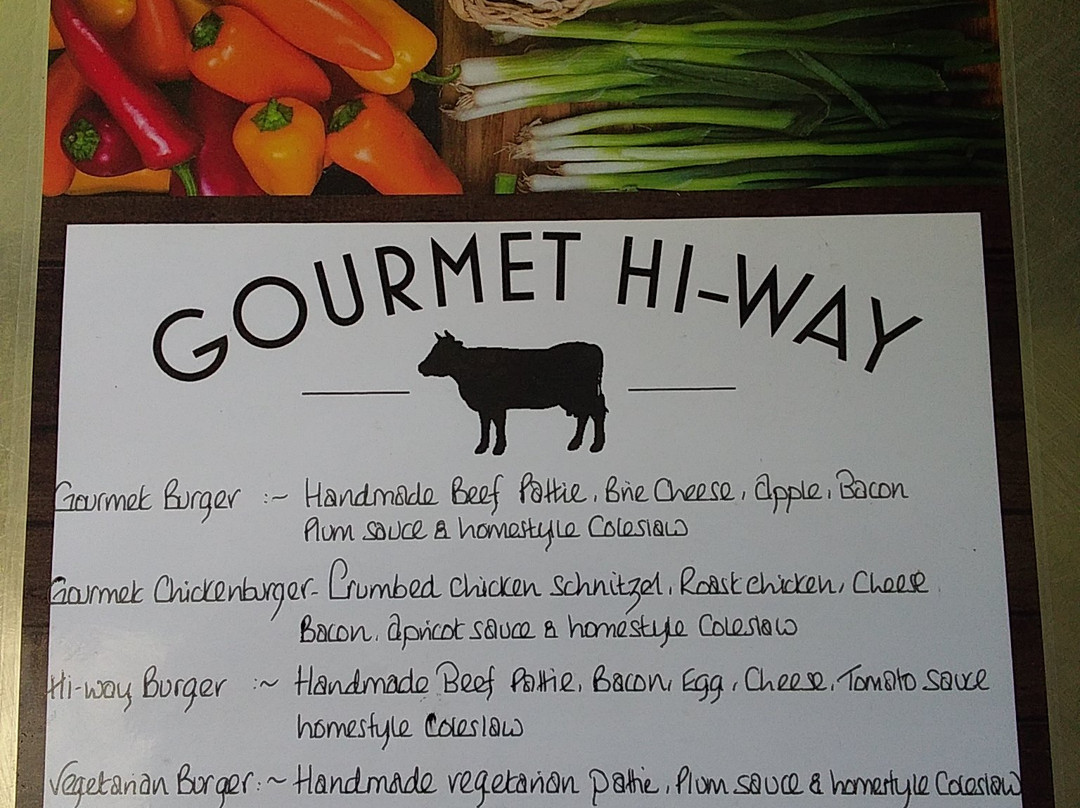 GOURMET HI-WAY
Gourmet Burger :~ Handmade Beef Pattie, Brie Cheese, Apple, Bacon
Plum sauce & homestyle Coleslaw
Gourmet Chickenburger- Crumbed chicken schnitzel, Roast chicken, Cheese
Bacon, Apricot sauce & homestyle Coleslaw
Hi-way Burger :~ Handmade Beef Pattie, Bacon, Egg, Cheese, Tomato sauce
homestyle Coleslaw
Vegetarian Burger:~ Handmade vegetarian pattie, Plum sauce & homestyle Coleslaw